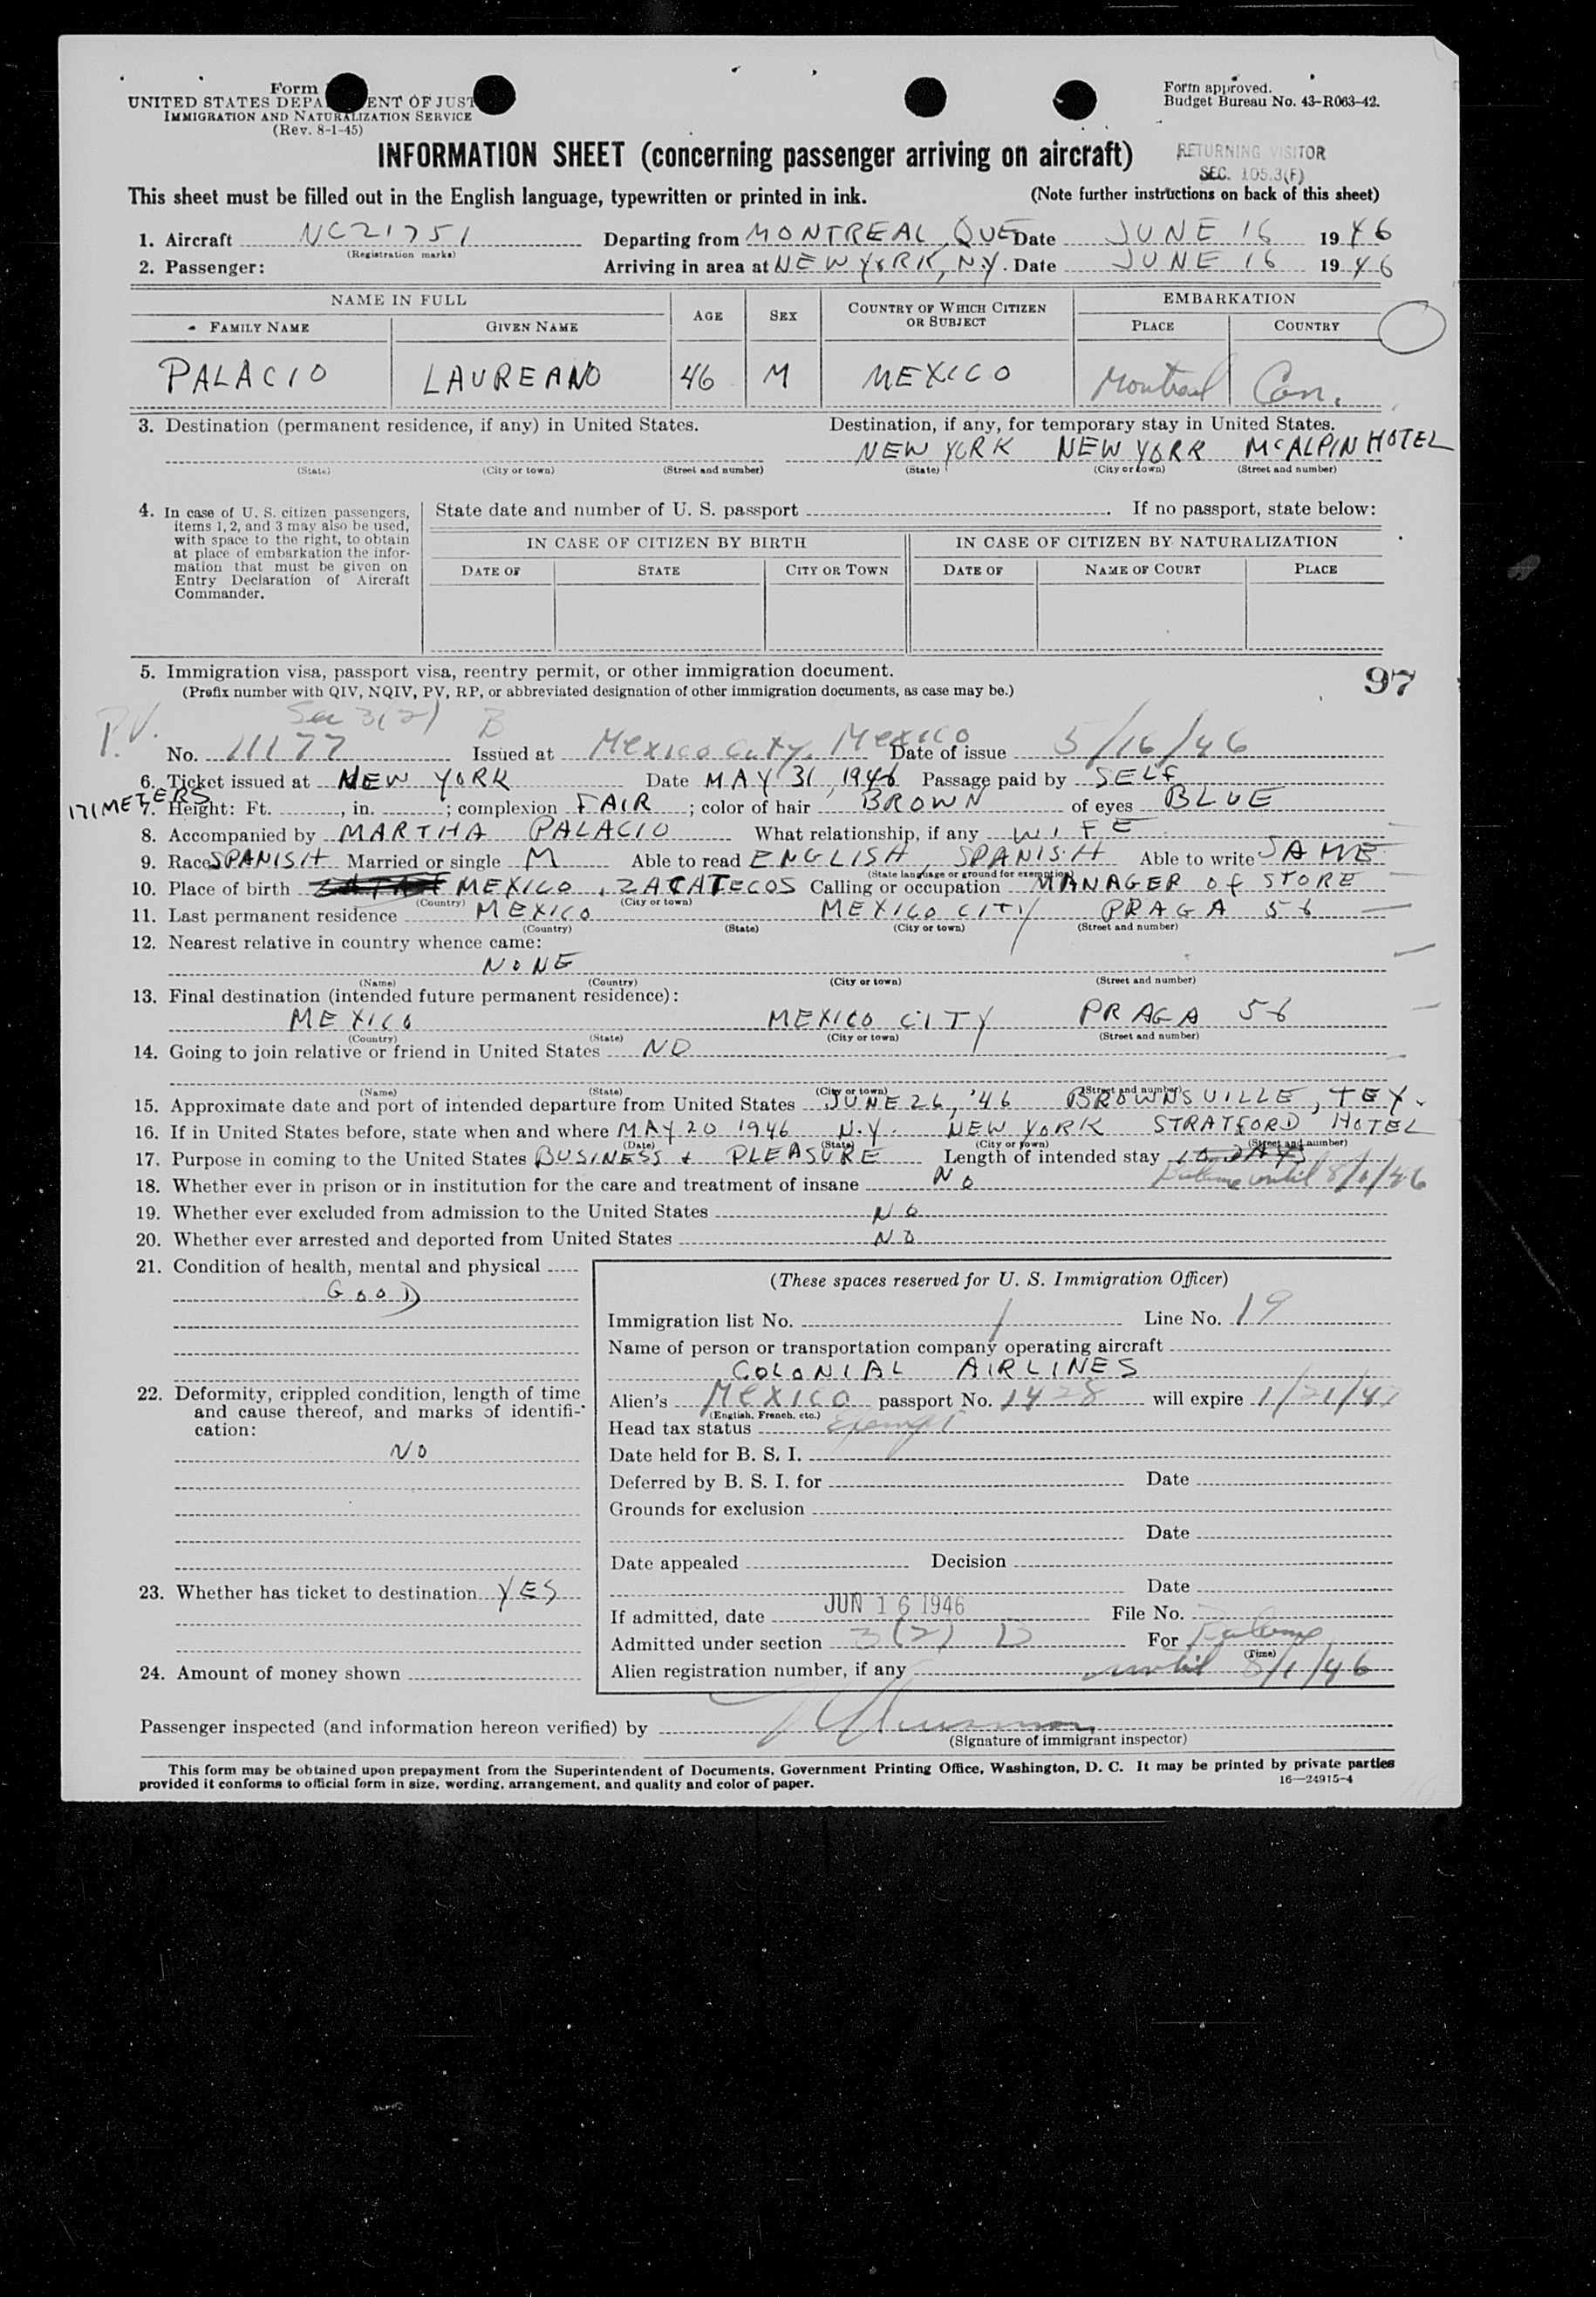 Form
UNITED STATES DEPA ENT OF JUST
IMMIGRATION AND NATURALIZATION SERVICE
(Rev. 8-1-45)
Form approved.
Budget Bureau No. 43-R063-42.
INFORMATION SHEET (concerning passenger arriving on aircraft)
RETURNING VISITOR
SEC. 105.3(F)
This sheet must be filled out in the English language, typewritten or printed in ink. (Note further instructions on back of this sheet)
1. Aircraft NC21751 Departing from MONTREAL, QUE Date JUNE 16 1946
(Registration marks)
2. Passenger: Arriving in area at NEW YORK, N.Y. Date JUNE 16 1946
NAME IN FULL AGE SEX COUNTRY OF WHICH CITIZEN OR SUBJECT EMBARKATION
FAMILY NAME GIVEN NAME PLACE COUNTRY
PALACIO LAUREANO 46 M MEXICO Montreal Can.
3. Destination (permanent residence, if any) in United States. Destination, if any, for temporary stay in United States.
NEW YORK NEW YORK McALPIN HOTEL
(State) (City or town) (Street and number) (State) (City or town) (Street and number)
4. In case of U. S. citizen passengers, items 1, 2, and 3 may also be used, with space to the right, to obtain at place of embarkation the information that must be given on Entry Declaration of Aircraft Commander.
State date and number of U. S. passport . If no passport, state below:
IN CASE OF CITIZEN BY BIRTH IN CASE OF CITIZEN BY NATURALIZATION
DATE OF STATE CITY OR TOWN DATE OF NAME OF COURT PLACE
5. Immigration visa, passport visa, reentry permit, or other immigration document.
97
(Prefix number with QIV, NQIV, PV, RP, or abbreviated designation of other immigration documents, as case may be.)
P.V. Sec 3(2) B
No. 11177 Issued at Mexico City, Mexico Date of issue 5/16/46
6. Ticket issued at NEW YORK Date MAY 31, 1946 Passage paid by SELF
171 METERS
7. Height: Ft. , in. ; complexion FAIR ; color of hair BROWN of eyes BLUE
8. Accompanied by MARTHA PALACIO What relationship, if any WIFE
9. Race SPANISH Married or single M Able to read ENGLISH, SPANISH Able to write SAME
(State language or ground for exemption)
10. Place of birth MEXICO, ZACATECOS Calling or occupation MANAGER of STORE
(Country) (City or town)
11. Last permanent residence MEXICO MEXICO CITY PRAGA 56
(Country) (State) (City or town) (Street and number)
12. Nearest relative in country whence came:
NONE
(Name) (Country) (City or town) (Street and number)
13. Final destination (intended future permanent residence):
MEXICO MEXICO CITY PRAGA 56
(Country) (State) (City or town) (Street and number)
14. Going to join relative or friend in United States NO
(Name) (State) (City or town) (Street and number)
15. Approximate date and port of intended departure from United States JUNE 26, '46 BROWNSVILLE, TEX.
16. If in United States before, state when and where MAY 20 1946 N.Y. NEW YORK STRATFORD HOTEL
(Date) (State) (City or town) (Street and number)
17. Purpose in coming to the United States BUSINESS + PLEASURE Length of intended stay 10 DAYS
18. Whether ever in prison or in institution for the care and treatment of insane NO until 8/1/46
19. Whether ever excluded from admission to the United States NO
20. Whether ever arrested and deported from United States NO
21. Condition of health, mental and physical
GOOD
22. Deformity, crippled condition, length of time and cause thereof, and marks of identification:
NO
23. Whether has ticket to destination YES
24. Amount of money shown
(These spaces reserved for U. S. Immigration Officer)
Immigration list No. 1 Line No. 19
Name of person or transportation company operating aircraft
COLONIAL AIRLINES
Alien's MEXICO passport No. 1428 will expire 1/21/47
(English, French, etc.)
Head tax status Exempt
Date held for B. S. I.
Deferred by B. S. I. for Date
Grounds for exclusion
Date
Date appealed Decision
Date
If admitted, date JUN 16 1946 File No.
Admitted under section 3(2) B For
(Time)
Alien registration number, if any until 8/1/46
Passenger inspected (and information hereon verified) by
(Signature of immigrant inspector)
This form may be obtained upon prepayment from the Superintendent of Documents, Government Printing Office, Washington, D. C. It may be printed by private parties
provided it conforms to official form in size, wording, arrangement, and quality and color of paper. 16—24915-4